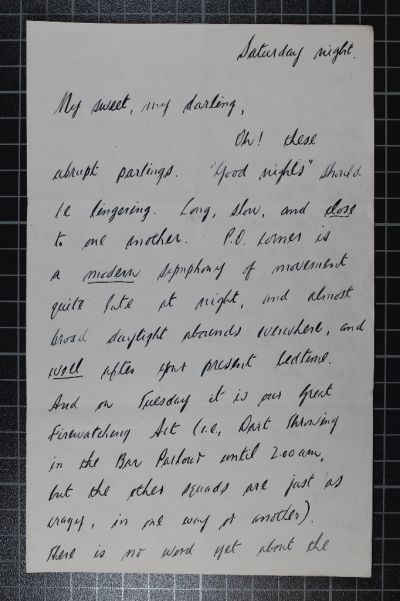 Saturday night.
My sweet, my darling,
Oh! these
abrupt partings. "Good nights" should
be lingering. Long, slow, and close
to one another. P.O. corner is
a modern symphony of movement
quite late at night, and almost
broad daylight abounds everwhere, and
well after your present bedtime.
And on Tuesday it is our Great
Firewatching Act (i.e, Dart Throwing
in the Bar Parlour until 2.00 am,
but the other squads are just as
crazy, in one way or another).
There is no word yet about the